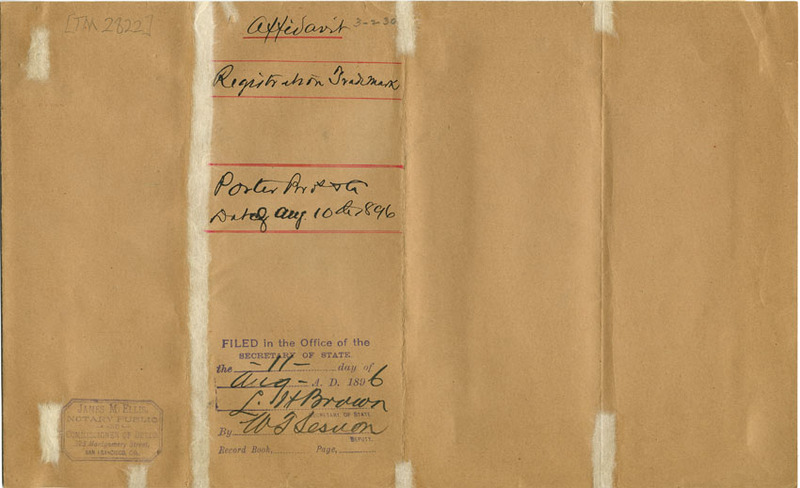 [TM 2822]
Affidavit 3-2-30
Registration Trademark
Porter Bros & Co
Dated Aug. 10th 1896
FILED in the Office of the
SECRETARY OF STATE.
the -11- day of
Aug- A. D. 1896
L. H. Brown
SECRETARY OF STATE
By W T Sesnon
DEPUTY.
Record Book, Page,
JAMES M. ELLIS,
NOTARY PUBLIC
AND
COMMISSIONER OF DEEDS
Montgomery Street,
SAN FRANCISCO, CAL.